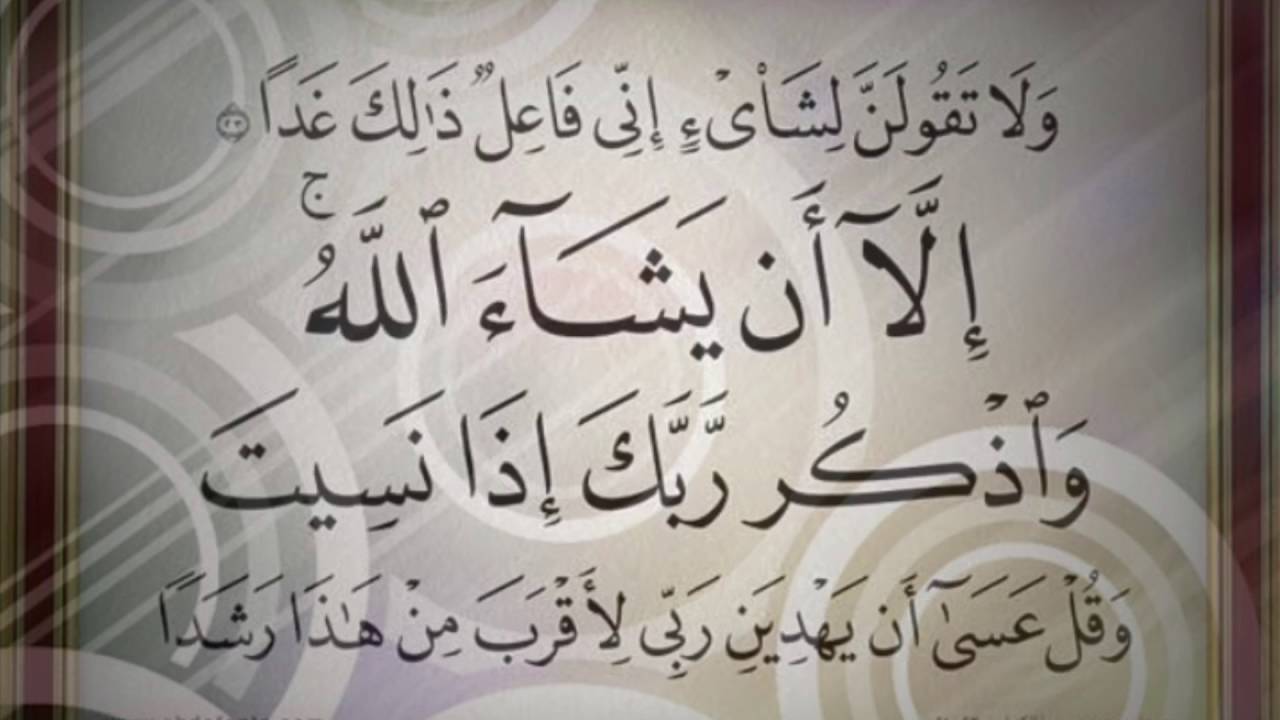 وَلَا تَقُولَنَّ لِشَا۟ىْءٍ إِنِّى فَاعِلٌ ذَٰلِكَ غَدًا ﴿٢٣﴾
إِلَّآ أَن يَشَآءَ ٱللَّهُ ۚ
وَٱذْكُر رَّبَّكَ إِذَا نَسِيتَ
وَقُلْ عَسَىٰٓ أَن يَهْدِيَنِ رَبِّى لِأَقْرَبَ مِنْ هَٰذَا رَشَدًا